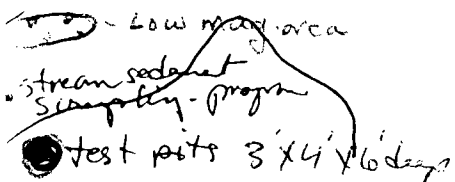 - Low mag. area
stream sediment
sampling - program
test pits 3' x 4' x 6' deep